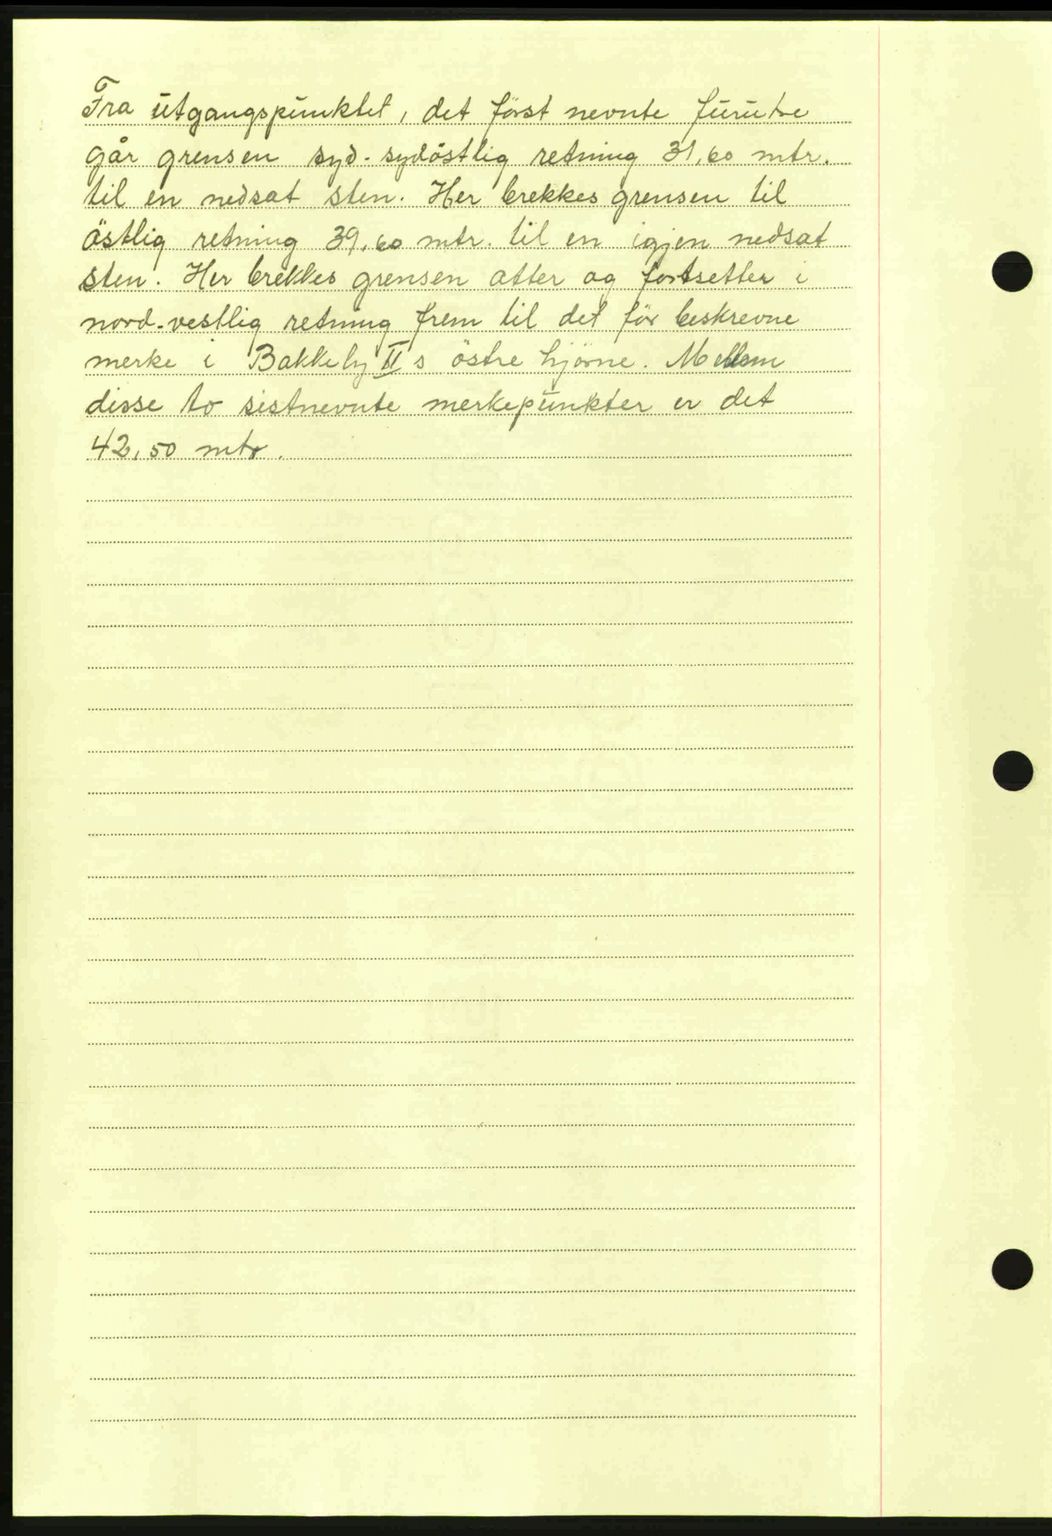 Fra utgangspunktet, det først nevnte furutre
går grensen syd-sydöstlig retning 31,60 mtr.
til en nedsat sten. Her brekkes grensen til
östlig retning 39,60 mtr. til en igjen nedsat
sten. Her brekkes grensen atter og fortsetter i
nord-vestlig retning frem til det för beskrevne
merke i Bakkeby II's östre hjörne. Mellem
disse to sistnevnte merkepunkter er det
42,50 mtr.